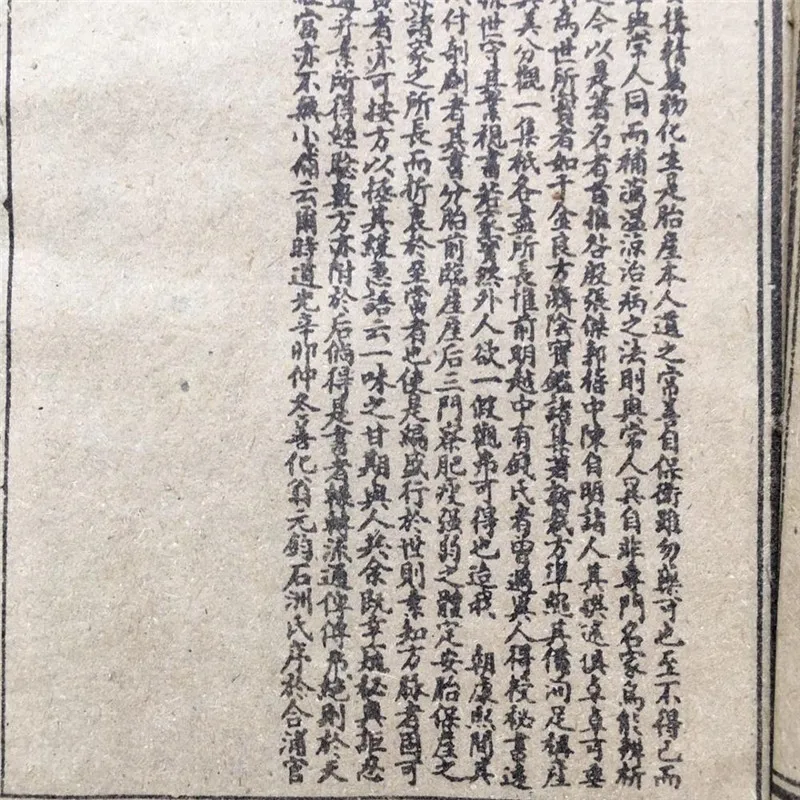 媾精萬物化生是胎產本人道之常善自保衛雖勿藥可也至不得已而
與常人同而補瀉溫涼治病之法則與常人異自非專門名家烏能辨析
今以是著名者首推咎殷張傑郭稽中陳自明諸人其撰述俱卓卓可垂
為世所寶者如千金良方濟陰寶鑑諸集著論裁方準繩具備洵足稱產
其美分觀一集祇各盡所長惟前明越中有錢氏者曾遇異人得授秘書遂
世守其業視書若至寶然外人欲一假觀弗可得也迨我 朝康熙間其
付剞劂者其書分胎前臨產產后三門察肥瘦强弱之體定安胎保產之
諸家之所長而折衷於至當者也使是編盛行於世則業知方脉者固可
者亦可按方以拯其緩急語云一味之甘期與人共余既幸窺秘與詎忍
并業所得經驗數方亦附於后倘得是書者輾轉流通俾傳弗絕則於天
當亦不無小補云爾時道光辛卯仲冬善化翁元鈞石洲氏序於合浦官